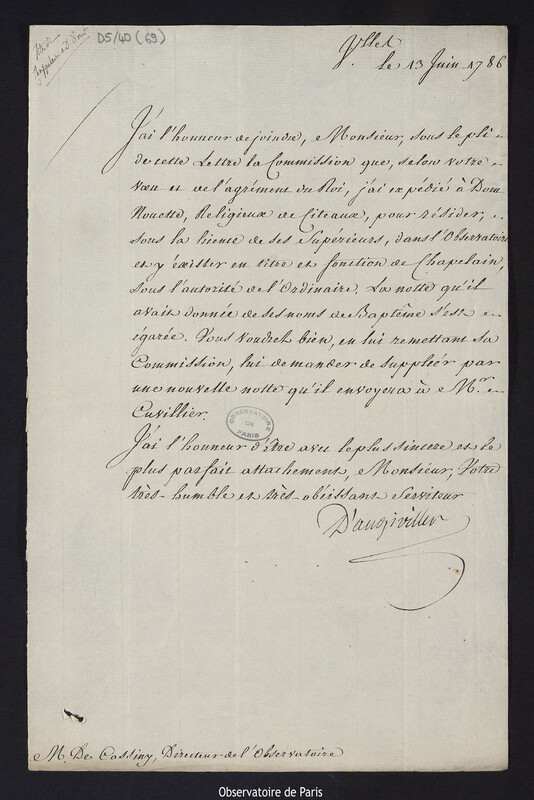 D5/40 (69)
Vlles
le 13 Juin 1786
J'ai l'honneur de joindre, Monsieur, sous le pli
de cette Lettre la Commission que, selon votre
vœu et de l'agrément du Roi, j'ai expédié à Dom
Nouette, Religieux de Citeaux, pour résider,
sous la licence de ses Supérieurs, dans l'Observatoire
et y éxister en titre et fonction de Chapelain,
sous l'autorité de l'Ordinaire. La notte qu'il
avait donnée de ses noms de Baptême s'est
égarée. Vous voudrez bien, en lui remettant sa
Commission, lui demander de suppléer par
une nouvelle notte qu'il envoyera à Mr.
Cuvillier.
OBSERVATOIRE
DE
PARIS
J'ai l'honneur d'être avec le plus sincere et le
plus parfait attachement, Monsieur, Votre
très-humble et très-obéissant Serviteur
D'angiviller
M. De Cassiny, Directeur de l'Observatoire
Observatoire de Paris